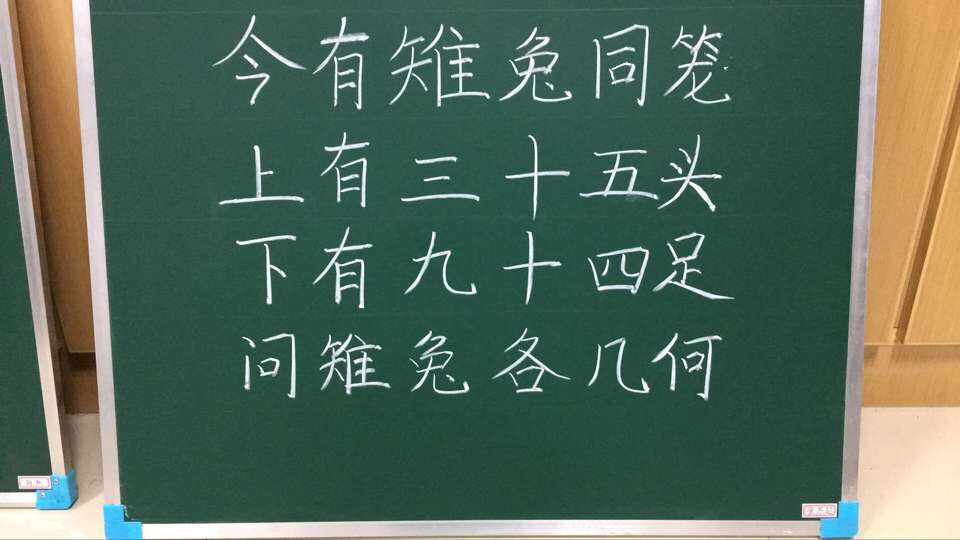 今有雉兔同笼
上有三十五头
下有九十四足
问雉兔各几何